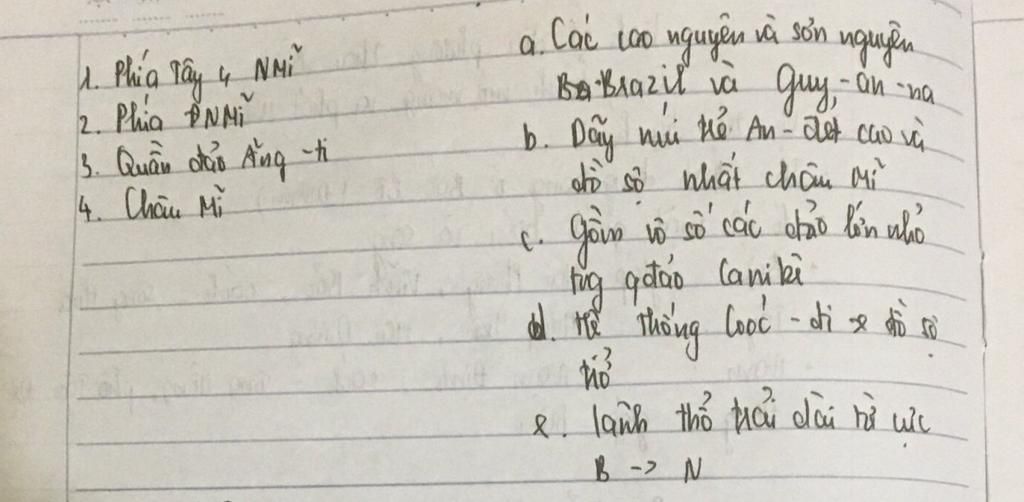 1. Phía Tây ở NMĩ
2. Phía ĐNMĩ
3. Quần đảo Ăng-ti
4. Châu Mĩ
a. Các cao nguyên và sơn nguyên
Brazil và Guy-an-na
b. Dãy núi trẻ An-đet cao và
đồ sộ nhất châu Mĩ
c. Gồm vô số các đảo lớn nhỏ
trg qđảo Caribê
d. Hệ thống Cooc-di-e đồ sộ
e. lãnh thổ trải dài từ cực
B -> N